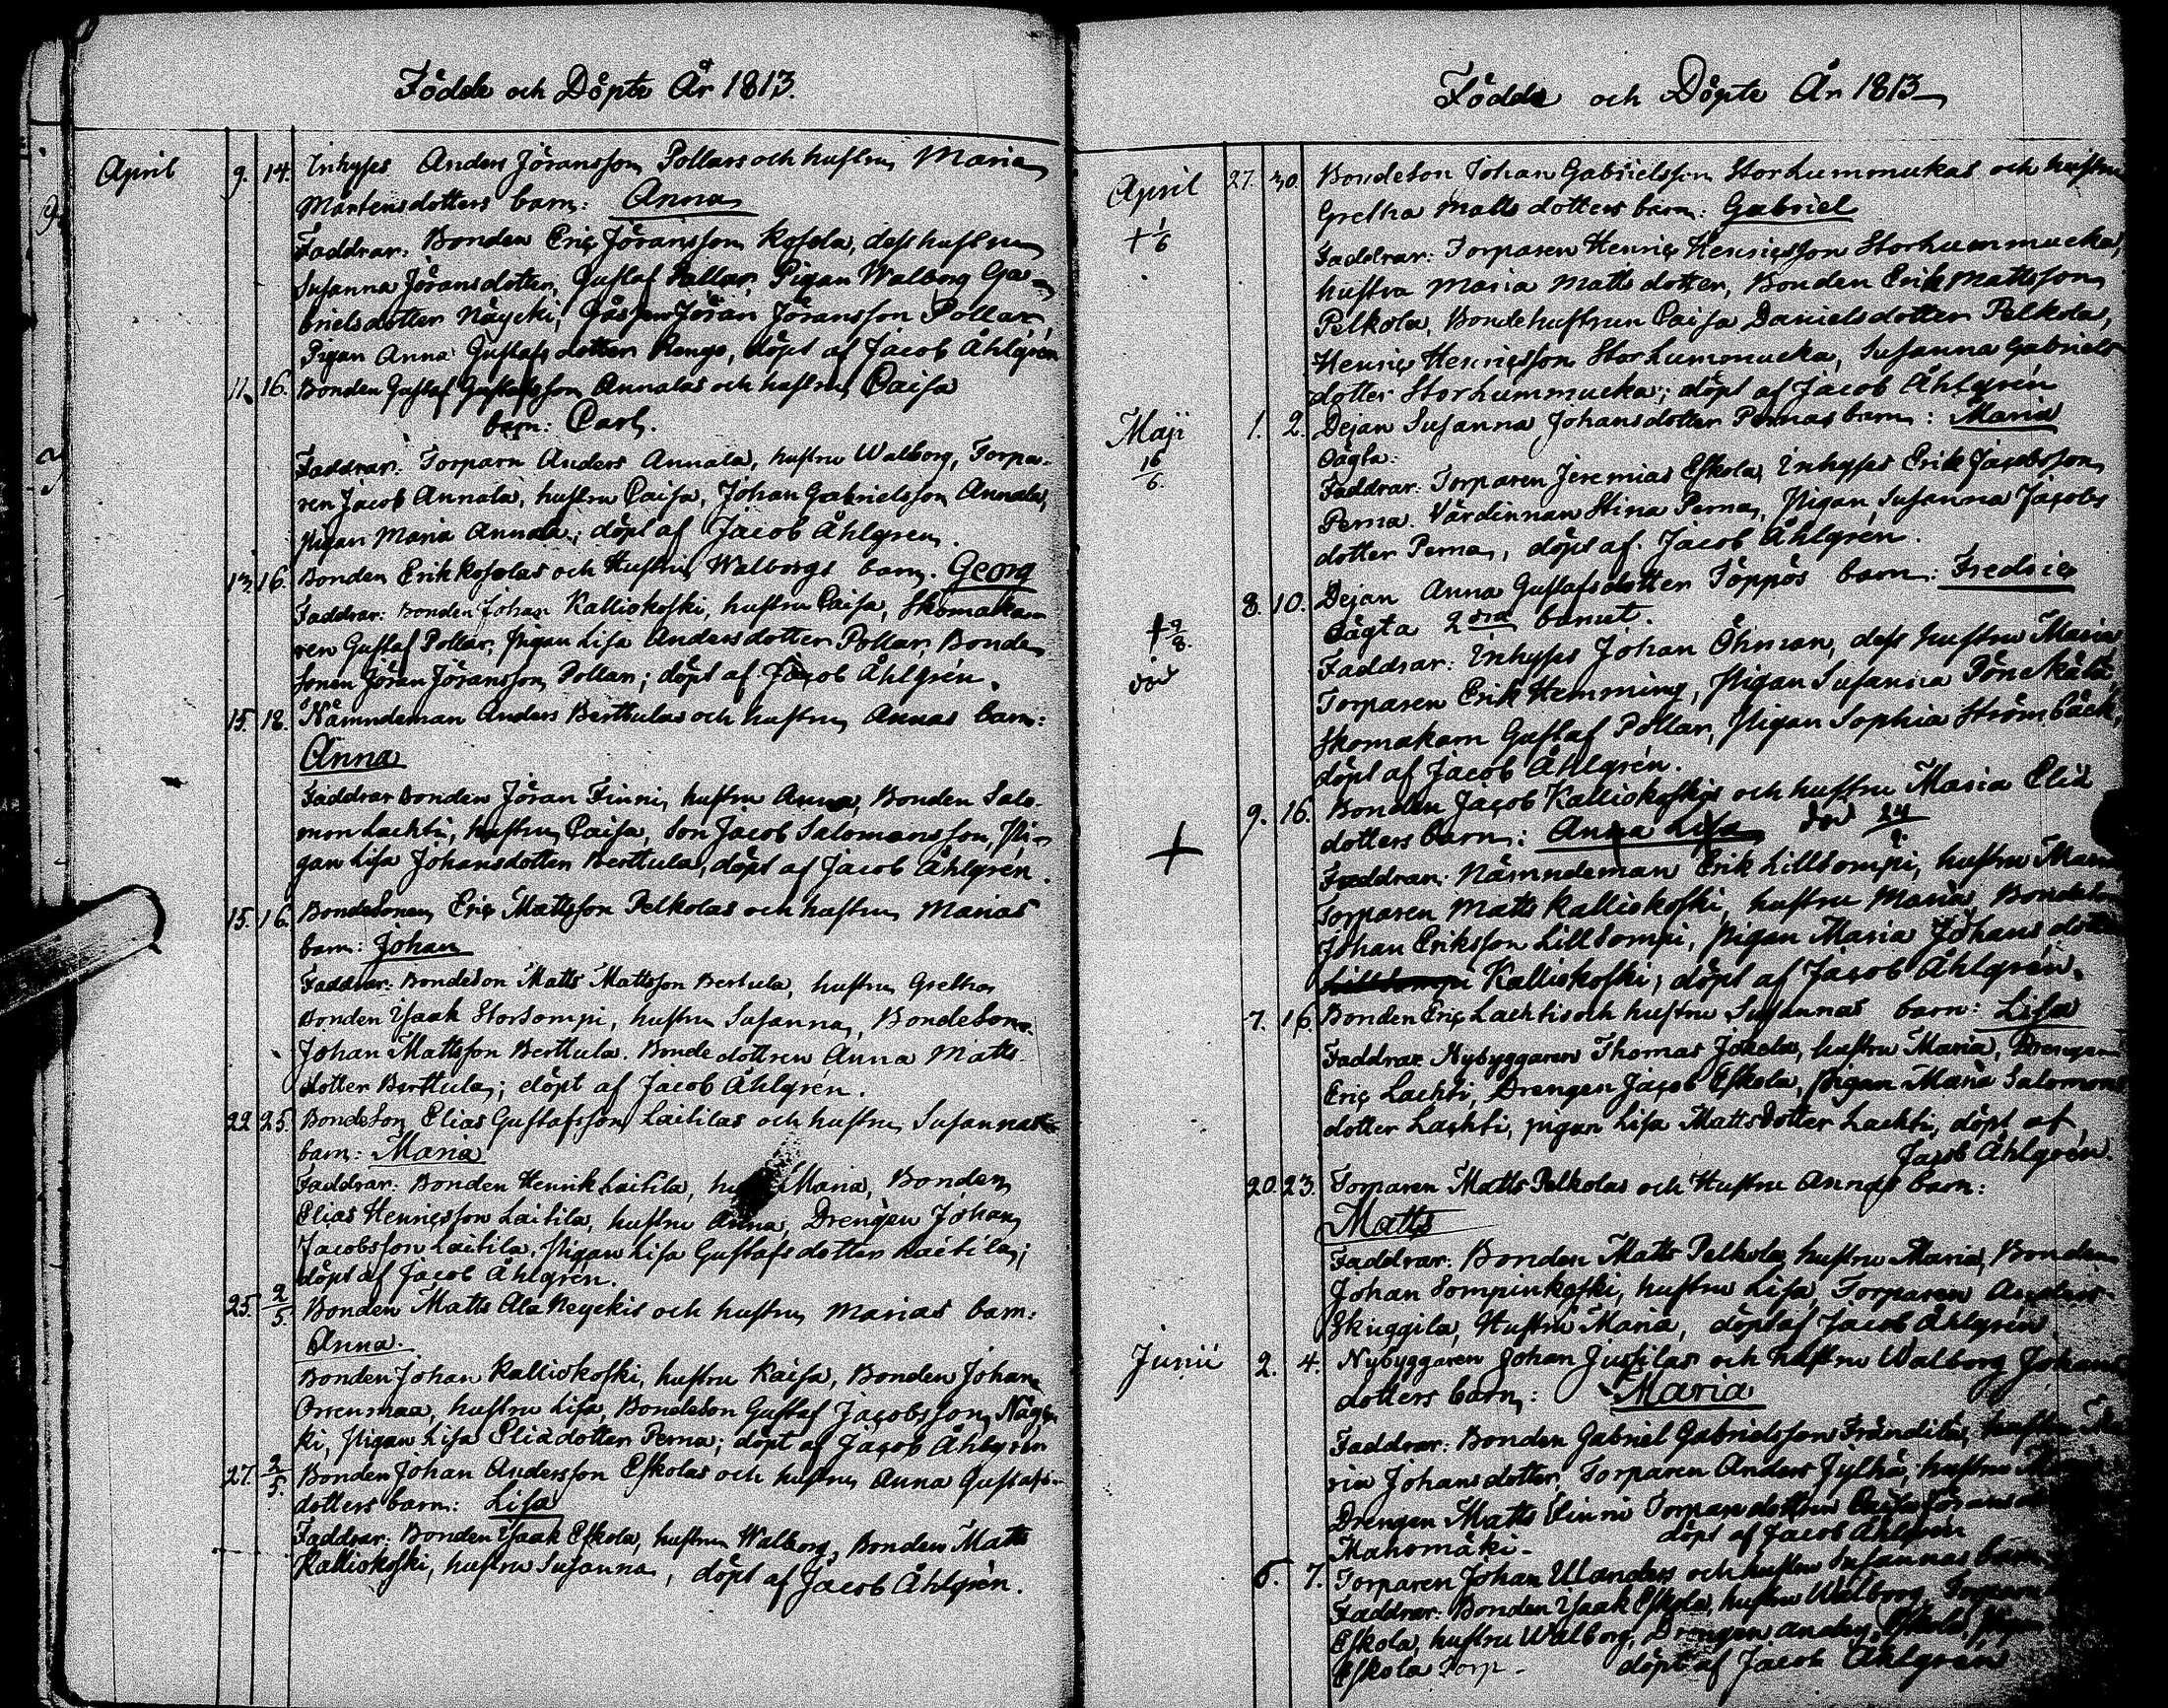 Födde och Döpte År 1813.
April 9. 14. Inhyses Anders Jöransson Pollars och hustru Maria
Mårtensdotters barn: Anna
Faddrar: Bonden Eric Jöransson Kosola, dess hustru
Susanna Jöransdotter, Gustaf Pollar, Pigan Walborg Ga-
brielsdotter Näycki, Jöran Jöransson Pollar,
Pigan Anna Gustafsdotter Rengo, döpt af Jacob Åhlgrén
11. 16. Bonden Gustaf Gustafsson Annalas och hustru Caisa
barn: Carl.
Faddrar: Torparn Anders Annala, hustru Walborg, Torpa-
ren Jacob Annala, hustru Caisa, Johan Gabrielsson Annala,
pigan Maria Annala; döpt af Jacob Åhlgren.
13. 16. Bonden Erik Kosolas och Hustru Walborgs barn. Georg
Faddrar: Bonden Johan Kalliokoski, hustru Caisa, Skomaka-
ren Gustaf Pollar, Pigan Lisa Andersdotter Pollar, Bonde
sonen Jöran Jöransson Pollar; döpt af Jacob Åhlgrén.
15. 18. Nämndeman Anders Berttulas och hustru Annas barn:
Anna
Faddrar Bonden Jöran Finni, hustru Anna, Bonden Salo-
mon Lachti, hustru Caisa, Son Jacob Salomonsson, Pi-
gan Lisa Johansdotter Berttula, döpt af Jacob Åhlgrén.
15. 16. Bondesonen Eric Mattsson Pelkolas och hustru Marias
barn: Johan
Faddrar: Bondeson Matts Mattsson Bertula, hustru Gretha
Bonden Ysaak Storsompi, hustru Susanna, Bondeson
Johan Mattsson Berttula. Bonde dottren Anna Matts
dotter Berttula; döpt af Jacob Åhlgrén.
22 25. Bondeson Elias Gustafsson Laitilas och hustru Susannas
barn: Maria
Faddrar: Bonden Henrik Laitila, Maria, Bonden
Elias Henricsson Laitila, hustru Anna, Drengen Johan
Jacobsson Laitila, Pigan Lisa Gustafsdotter Laitila;
döpt af Jacob Åhlgrén.
25. 2/5. Bonden Matts Ala Neyckis och hustru Marias barn:
Anna.
Bonden Johan Kalliokoski, hustru Kaisa, Bonden Johan
Orrenmaa, hustru Lisa, Bondeson Gustaf Jacobsson Näyc-
ki, Pigan Lisa Eliædotter Perna; döpt af Jacob Åhlgrén
27. 2/5. Bonden Johan Andersson Eskolas och hustru Anna Gustafs-
dotters barn: Lisa
Faddrar: Bonden Ysaak Eskola, hustru Walborg, Bonden Matts
Kalliokoski, hustru Susanna, döpt af Jacob Åhlgrén.
Födde och Döpte År 1813
April 27. 30. Bondeson Johan Gabrielsson Storhummukas och hustru
Gretha Mattsdotters barn: Gabriel
+ 1/6
Faddrar: Torparen Henric Henricsson Storhummucka,
hustru Maria Mattsdotter, Bonden Erik Mattsson
Pelkola, Bondehustrun Caisa Danielsdotter Pelkola,
Henric Henricsson Storhummucka, Susanna Gabriels
dotter Storhummucka; döpt af Jacob Åhlgrén
Maji 1. 2. Dejan Susanna Johansdotter Pernas barn: Maria
16/6. Oägta.
Faddrar: Torparen Jeremias Eskola, Inhyses Erik Jacobsson
Perna. Värdinnan Stina Perna, Pigan Susanna Jacobs
dotter Perna, döpt af Jacob Åhlgrén.
8. 10. Dejan Anna Gustafsdotter Töppös barn: Fredric
Oägta 2dra barnet.
+ 9/8. död
Faddrar: Inhyses Johan Öhman, dess hustru Maria
Torparen Erik Hemming, Pigan Susanna
Skomakarn Gustaf Pollar, Pigan Sophia Strömbäck,
döpt af Jacob Åhlgrén.
9. 16. Bonden Jacob Kalliokoskis och hustru Maria Eliæ
dotters barn: Anna Lisa död
+
Faddrar: Nämndeman Erik Lillsompi, hustru Maria
Torparen Matts Kalliokoski, hustru Maria, Bondeson
Johan Eriksson Lillsompi, pigan Maria Johansdotter
Lillsompi Kalliokoski; döpt af Jacob Åhlgrén.
7. 16. Bonden Eric Lachtis och hustru Susannas barn: Lisa
Faddrar. Nybyggaren Thomas Jokela, hustru Maria, Drengen
Eric Lachti, Drengen Jacob Eskola, Pigan Maria Salomons
dotter Lachti, pigan Lisa Mattsdotter Lachti, döpt af
Jacob Åhlgrén.
20. 23. Torparen Matts Pelkolas och Hustru Annas barn:
Matts
Faddrar: Bonden Matts Pelkola, hustru Maria, Bonden
Johan Sompinkoski, hustru Lisa, Torparen Anders
Skuggila, Hustru Maria, döpt af Jacob Åhlgrén
Junii 2. 4. Nybyggaren Johan Jussilas och hustru Walborg Johans
dotters barn: Maria
Faddrar: Bonden Gabriel Gabrielsson Frändilä, hustru Ma
ria Johansdotter, Torparen Anders Jylhä, hustru
Drengen Matts Finni Torparedottren
Mahomäki. döpt af Jacob Åhlgrén
6. 7. Torparen Johan Ulanders och hustru Susannas barn
Faddrar: Bonden Ysaak Eskola, hustru Walborg, Torparen
Eskola, hustru Walborg, Drengen Anders Eskola,
Eskola Torp. döpt af Jacob Åhlgrén